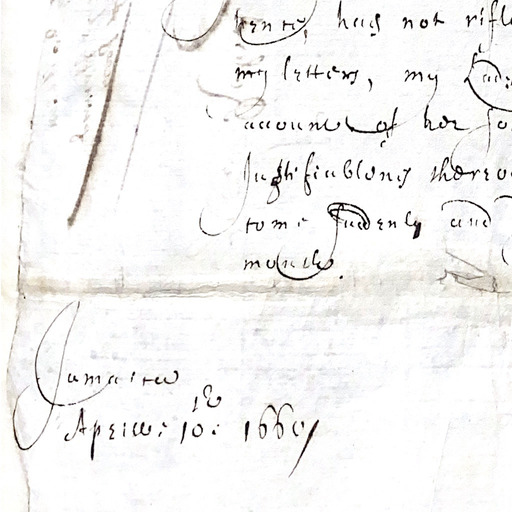 has not rifl
my letters, my Lad
account of her so
Justifiablenes thereo
come sudenly and
month.
Jamaica
Aprill: 10: 1660/